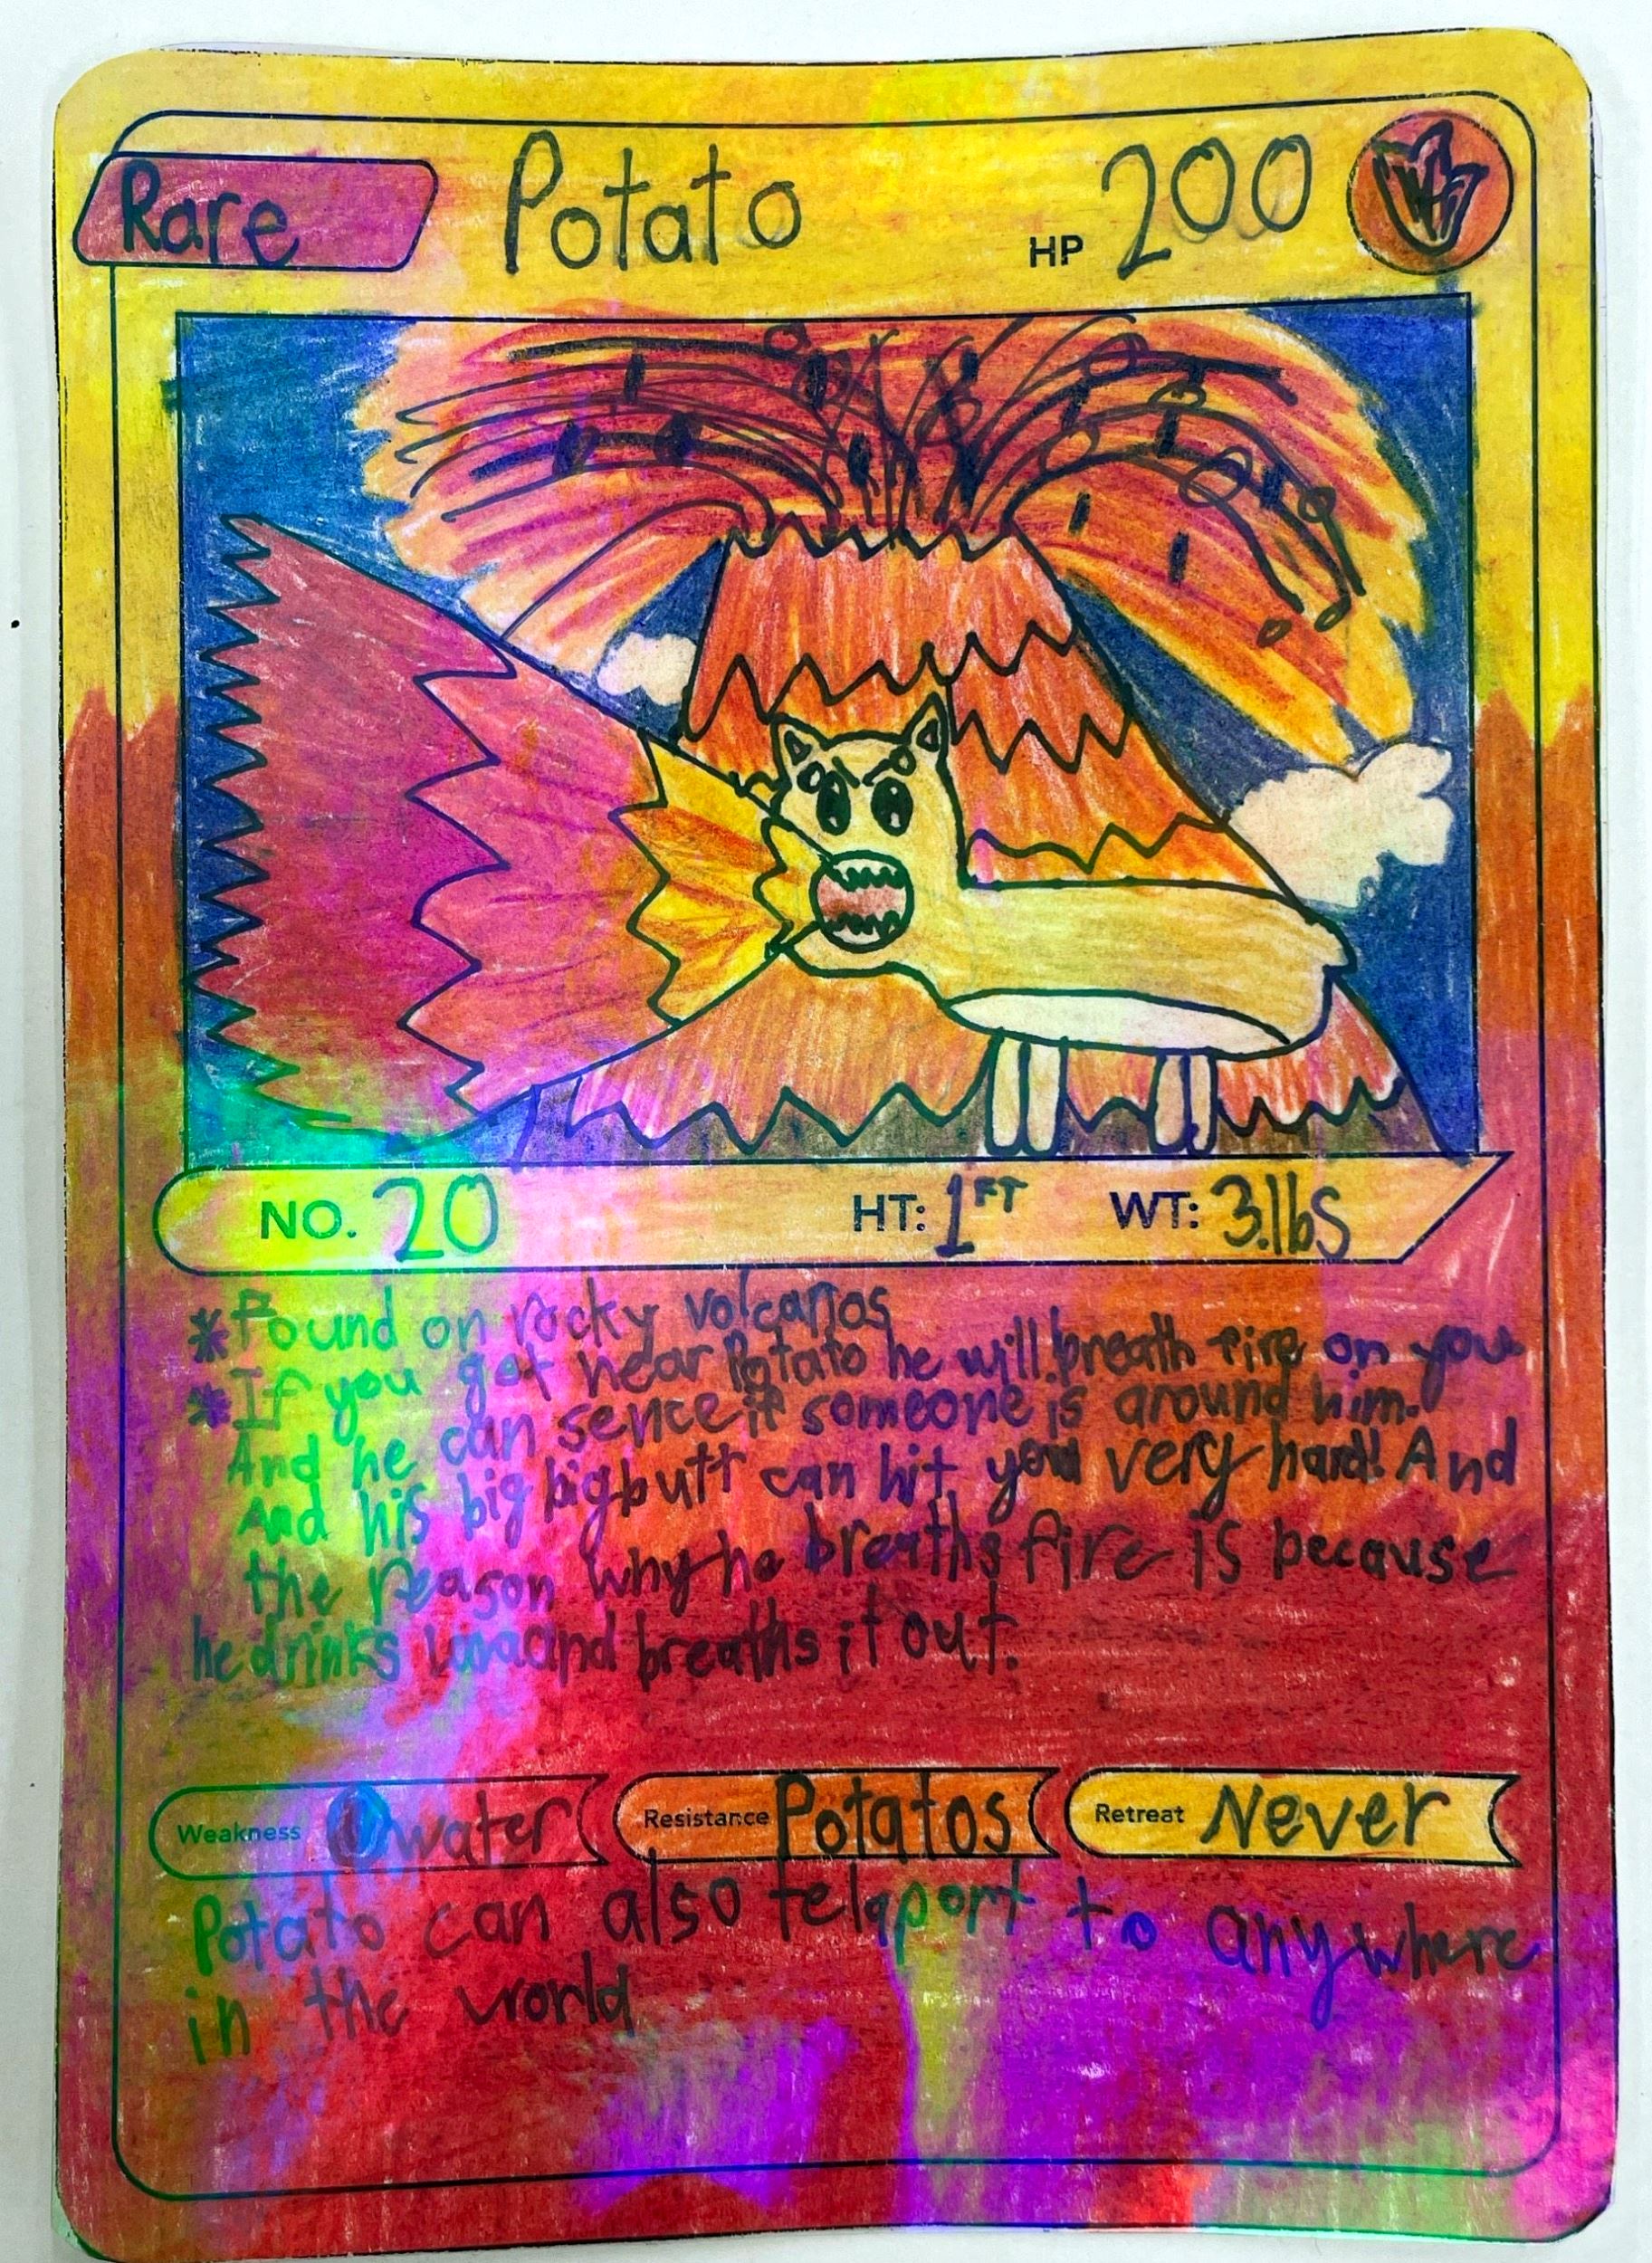 Rare Potato HP 200
NO. 20 HT: 1FT WT: 3.lbs
*Found on rocky volcanos
*If you get near Potato he will breath fire on you
And he can sence if someone is around him.
And his big big butt can hit you very hard! And
the reason why he breaths fire is because
he drinks lava and breaths it out.
Weakness water Resistance Potatos Retreat Never
Potato can also teleport to anywhere
in the world